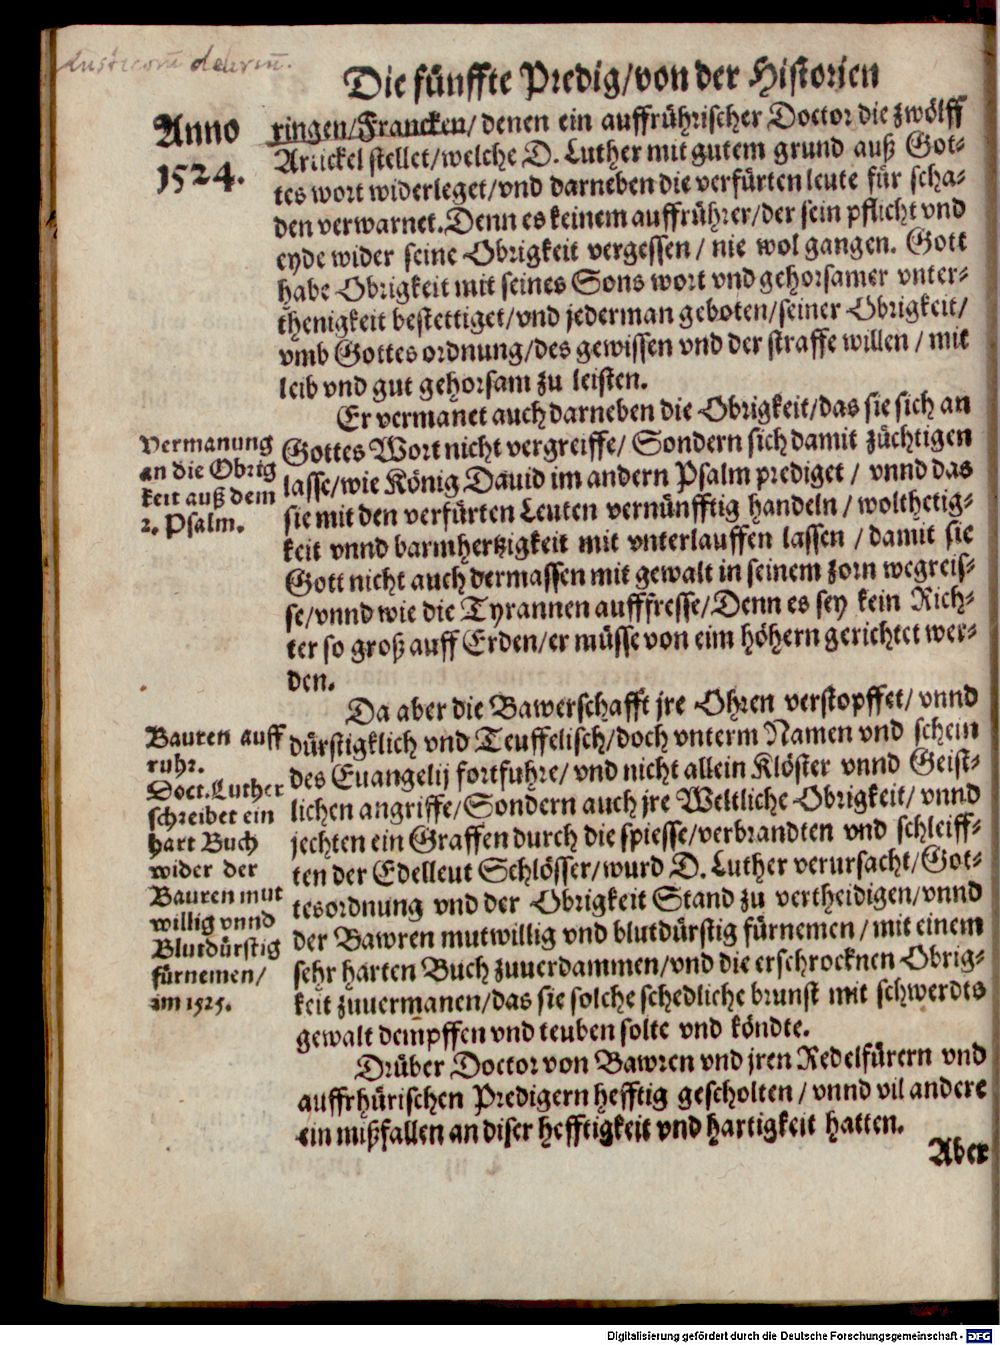 Die fünffte Predig/von der Historien
Anno
1524.
ringen/Francken/denen ein auffrührischer Doctor die zwölff
Artickel stellet/welche D. Luther mit gutem grund auß Got-
tes wort widerleget/vnd darneben die verfürten leute für scha-
den verwarnet. Denn es keinem auffrührer/der sein pflicht vnd
eyde wider seine Obrigkeit vergessen/nie wol gangen. Gott
habe Obrigkeit mit seines Sons wort vnd gehorsamer vnter-
thenigkeit bestettiget/vnd jederman geboten/seiner Obrigkeit/
vmb Gottes ordnung/des gewissen vnd der straffe willen/mit
leib vnd gut gehorsam zu leisten.
Er vermanet auch darneben die Obrigkeit/das sie sich an
Gottes Wort nicht vergreiffe/Sondern sich damit züchtigen
lasse/wie König Dauid im andern Psalm prediget/vnnd das
sie mit den verfürten Leuten vernünfftig handeln/wolthetig-
keit vnnd barmhertzigkeit mit vnterlauffen lassen/damit sie
Gott nicht auch dermassen mit gewalt in seinem zorn wegreis-
se/vnnd wie die Tyrannen aufffresse/Denn es sey kein Rich-
ter so groß auff Erden/er müsse von eim höhern gerichtet wer-
den.
Vermanung
an die Obrig
keit auß dem
2. Psalm.
Da aber die Bawerschafft jre Ohren verstopffet/vnnd
dürstigklich vnd Teuffelisch/doch vnterm Namen vnd schein
des Euangelij fortfuhre/vnd nicht allein Klöster vnnd Geist-
lichen angriffe/Sondern auch jre Weltliche Obrigkeit/vnnd
jechten ein Graffen durch die spiesse/verbrandten vnd schleiff-
ten der Edelleut Schlösser/wurd D. Luther verursacht/Got-
tesordnung vnd der Obrigkeit Stand zu vertheidigen/vnnd
der Bawren mutwillig vnd blutdürstig fürnemen/mit einem
sehr harten Buch zuuerdammen/vnd die erschrocknen Obrig-
keit zuuermanen/das sie solche schedliche brunst mit schwerdts
gewalt dempffen vnd teuben solte vnd köndte.
Bauren auff
ruhr.
Doct. Luther
schreibet ein
hart Buch
wider der
Bauren mut
willig vnnd
Blutdürstig
fürnemen/
im 1525.
Drüber Doctor von Bawren vnd jren Redelfürern vnd
auffrhürischen Predigern hefftig gescholten/vnnd vil andere
ein mißfallen an diser hefftigkeit vnd hartigkeit hatten.
Aber
Digitalisierung gefördert durch die Deutsche Forschungsgemeinschaft - DFG